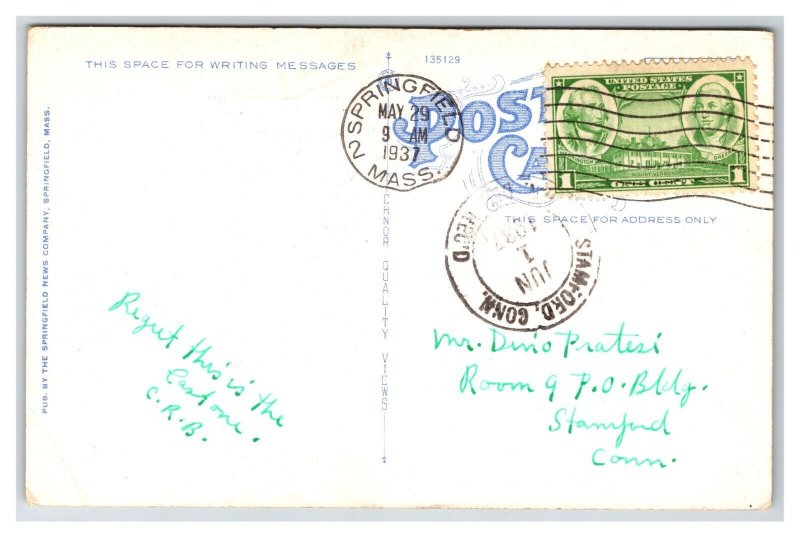 THIS SPACE FOR WRITING MESSAGES
135129
POST
CA
UNITED STATES
POSTAGE
MOUNT VERNON
1 ONE CENT
2 SPRINGFIELD
MAY 29
9 AM
1937
MASS.
THIS SPACE FOR ADDRESS ONLY
REC'D
JUN
1
STAMFORD, CONN.
CHNOR QUALITY VIEWS
PUB. BY THE SPRINGFIELD NEWS COMPANY, SPRINGFIELD, MASS.
Regret this is the
last one.
C.R.B.
Mr. Divio Pratesi
Room 9 P.O. Bldg.
Stamford
Conn.